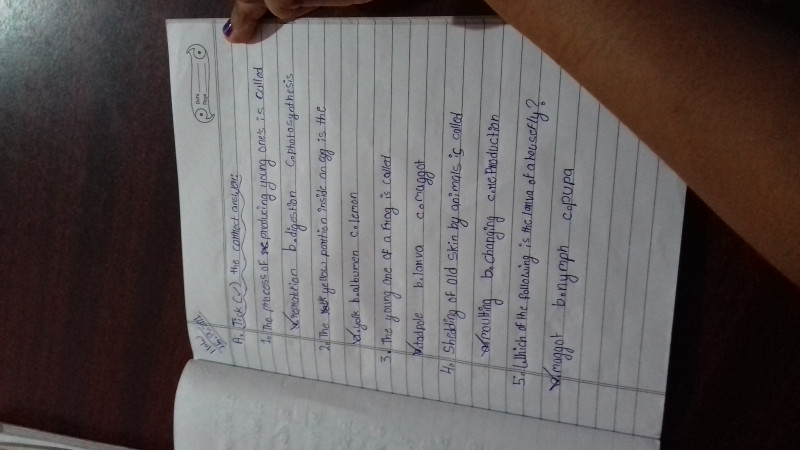 Date
Page
H.W
A. Tick (✓) the correct answer:
1. The process of reproducing young ones is called
✓a. reproduction b. digestion c. photosynthesis
2. The yellow portion inside an egg is the
✓a. yolk b. albumen c. lemon
3. The young one of a frog is called
✓a. tadpole b. larva c. maggot
4. Shedding of old skin by animals is called
✓a. moulting b. changing c. reproduction
5. Which of the following is the larva of a housefly?
✓a. maggot b. nymph c. pupa